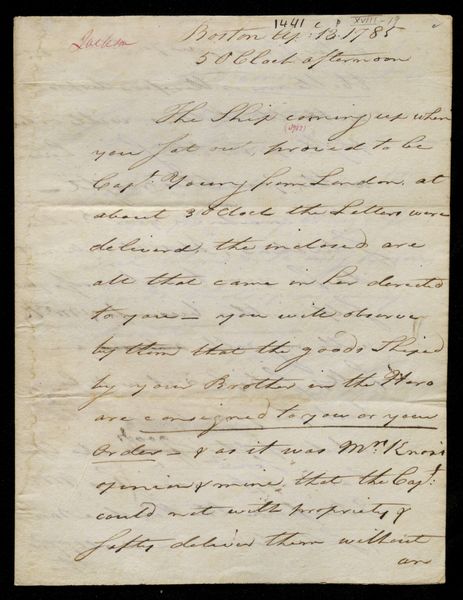 1441
XVIII-19
Jackson
Boston Ap: 13. 1785
5 OClock afternoon
The Ship coming up when
you Sat out, proved to be
Capt. Young from London. at
about 3 OClock the Letters were
deliverd, the inclosed are
all that came in her directed
to you — you will observe
by them that the goods Shiped
by your Brother in the Hero
are consigned to you or your
Order — & as it was Mr. Knox's
opinion & mine that the Capt.
could not with propriety &
Safty deliver them without
an